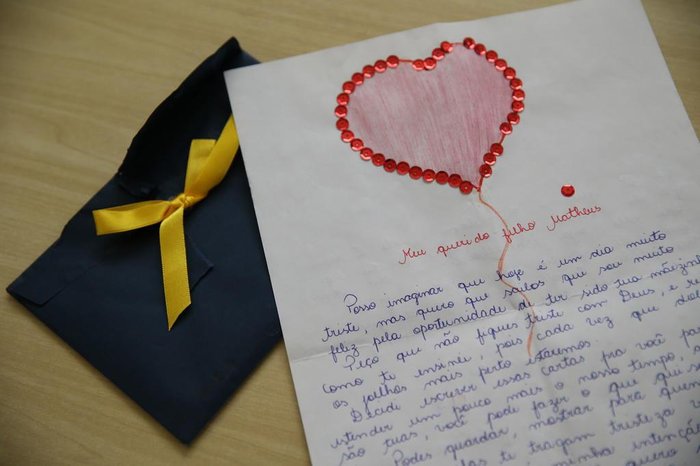 Meu querido filho Matheus
Posso imaginar que hoje é um dia muito
triste, mas quero que saibas que sou muito
feliz pela oportunidade de ter sido tua mãezinha
Peço que não fiques triste com Deus, e
como te ensinei, pois cada vez que
os joelhos mais perto estaremos.
Decidi escrever essas cartas pra você
estender um pouco mais o nosso tempo,
são tuas, você pode fazer o que
Podes guardar, mostrar para
te tragam tristeza
minha intenção
quero